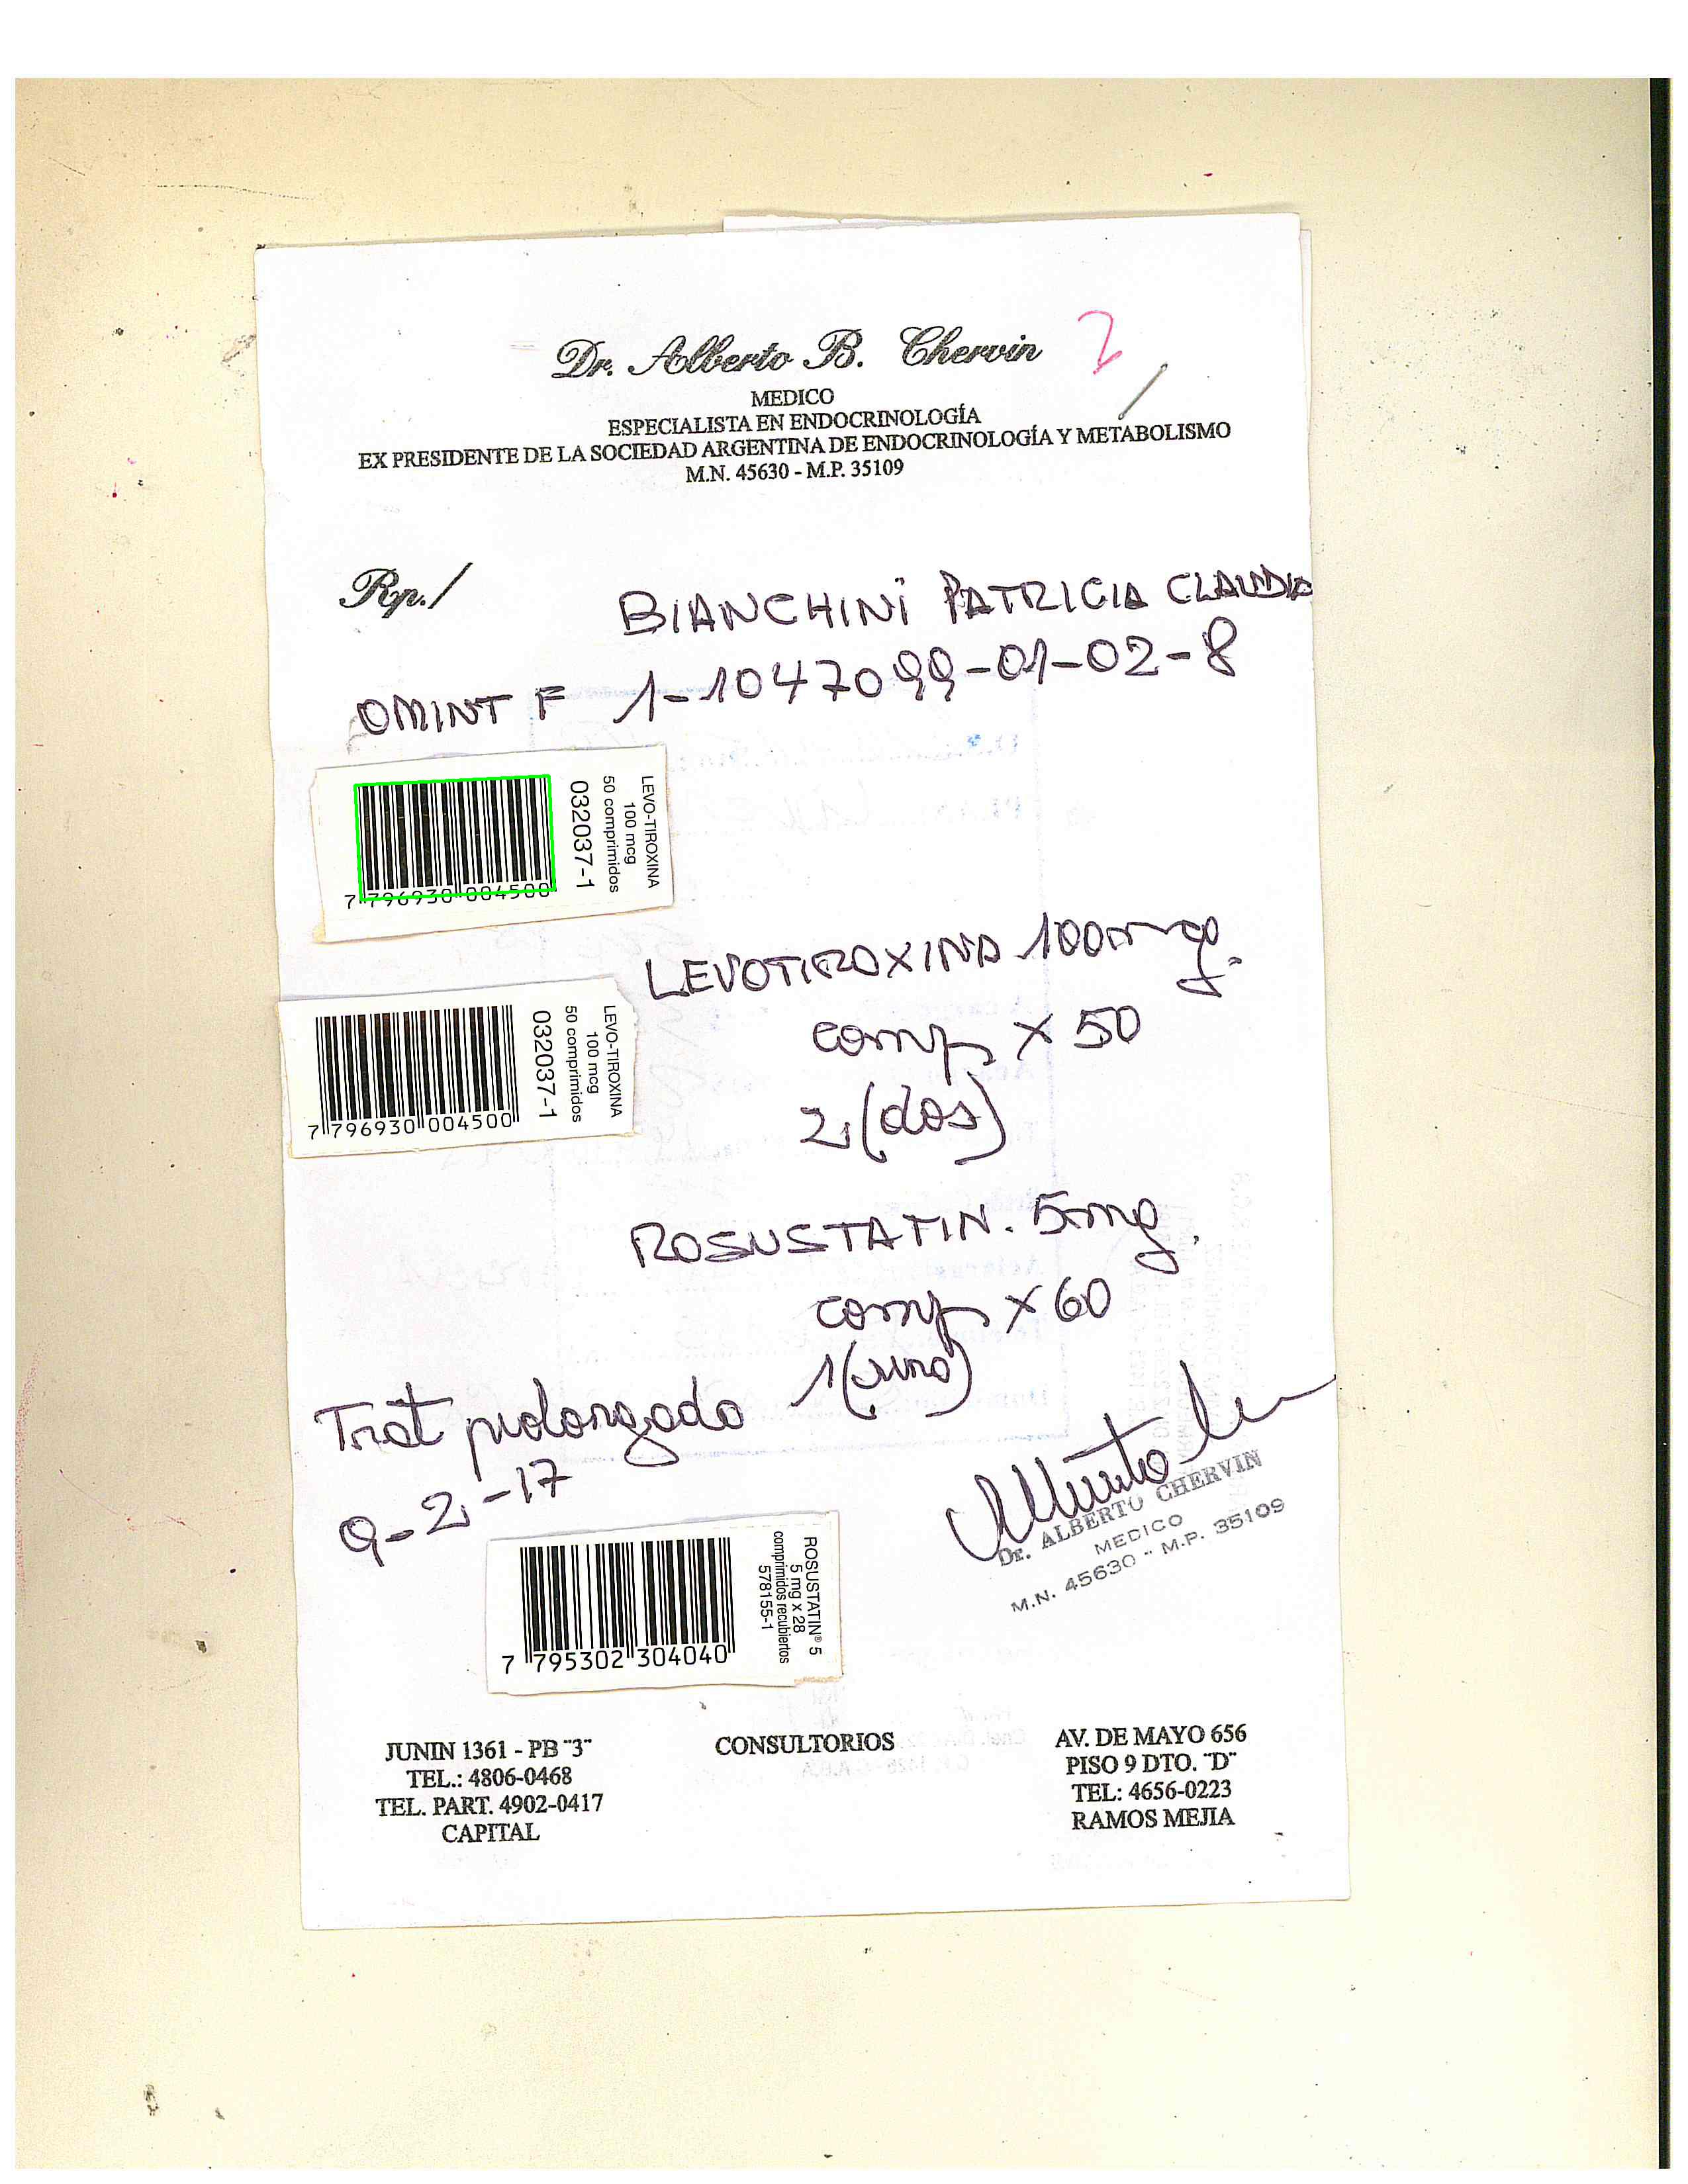 Dr. Alberto B. Chervin
2
MEDICO
ESPECIALISTA EN ENDOCRINOLOGÍA
EX PRESIDENTE DE LA SOCIEDAD ARGENTINA DE ENDOCRINOLOGÍA Y METABOLISMO
M.N. 45630 - M.P. 35109
Rp./
BIANCHINI PATRICIA CLAUDIA
OMINT F 1-1047099-01-02-8
LEVO-TIROXINA
100 mcg
50 comprimidos
032037-1
7 796930 004500
LEVOTIROXINA 100 mcg.
comp x 50
2 (dos)
LEVO-TIROXINA
100 mcg
50 comprimidos
032037-1
7 796930 004500
ROSUSTATIN. 5 mg.
comp x 60
1 (uno)
Trat prolongado
9-2-17
Dr. ALBERTO CHERVIN
MEDICO
M.N. 45630 - M.P. 35109
ROSUSTATIN® 5
5 mg x 28
comprimidos recubiertos
578155-1
7 795302 304040
JUNIN 1361 - PB "3"
TEL.: 4806-0468
TEL. PART. 4902-0417
CAPITAL
CONSULTORIOS
AV. DE MAYO 656
PISO 9 DTO. "D"
TEL: 4656-0223
RAMOS MEJIA